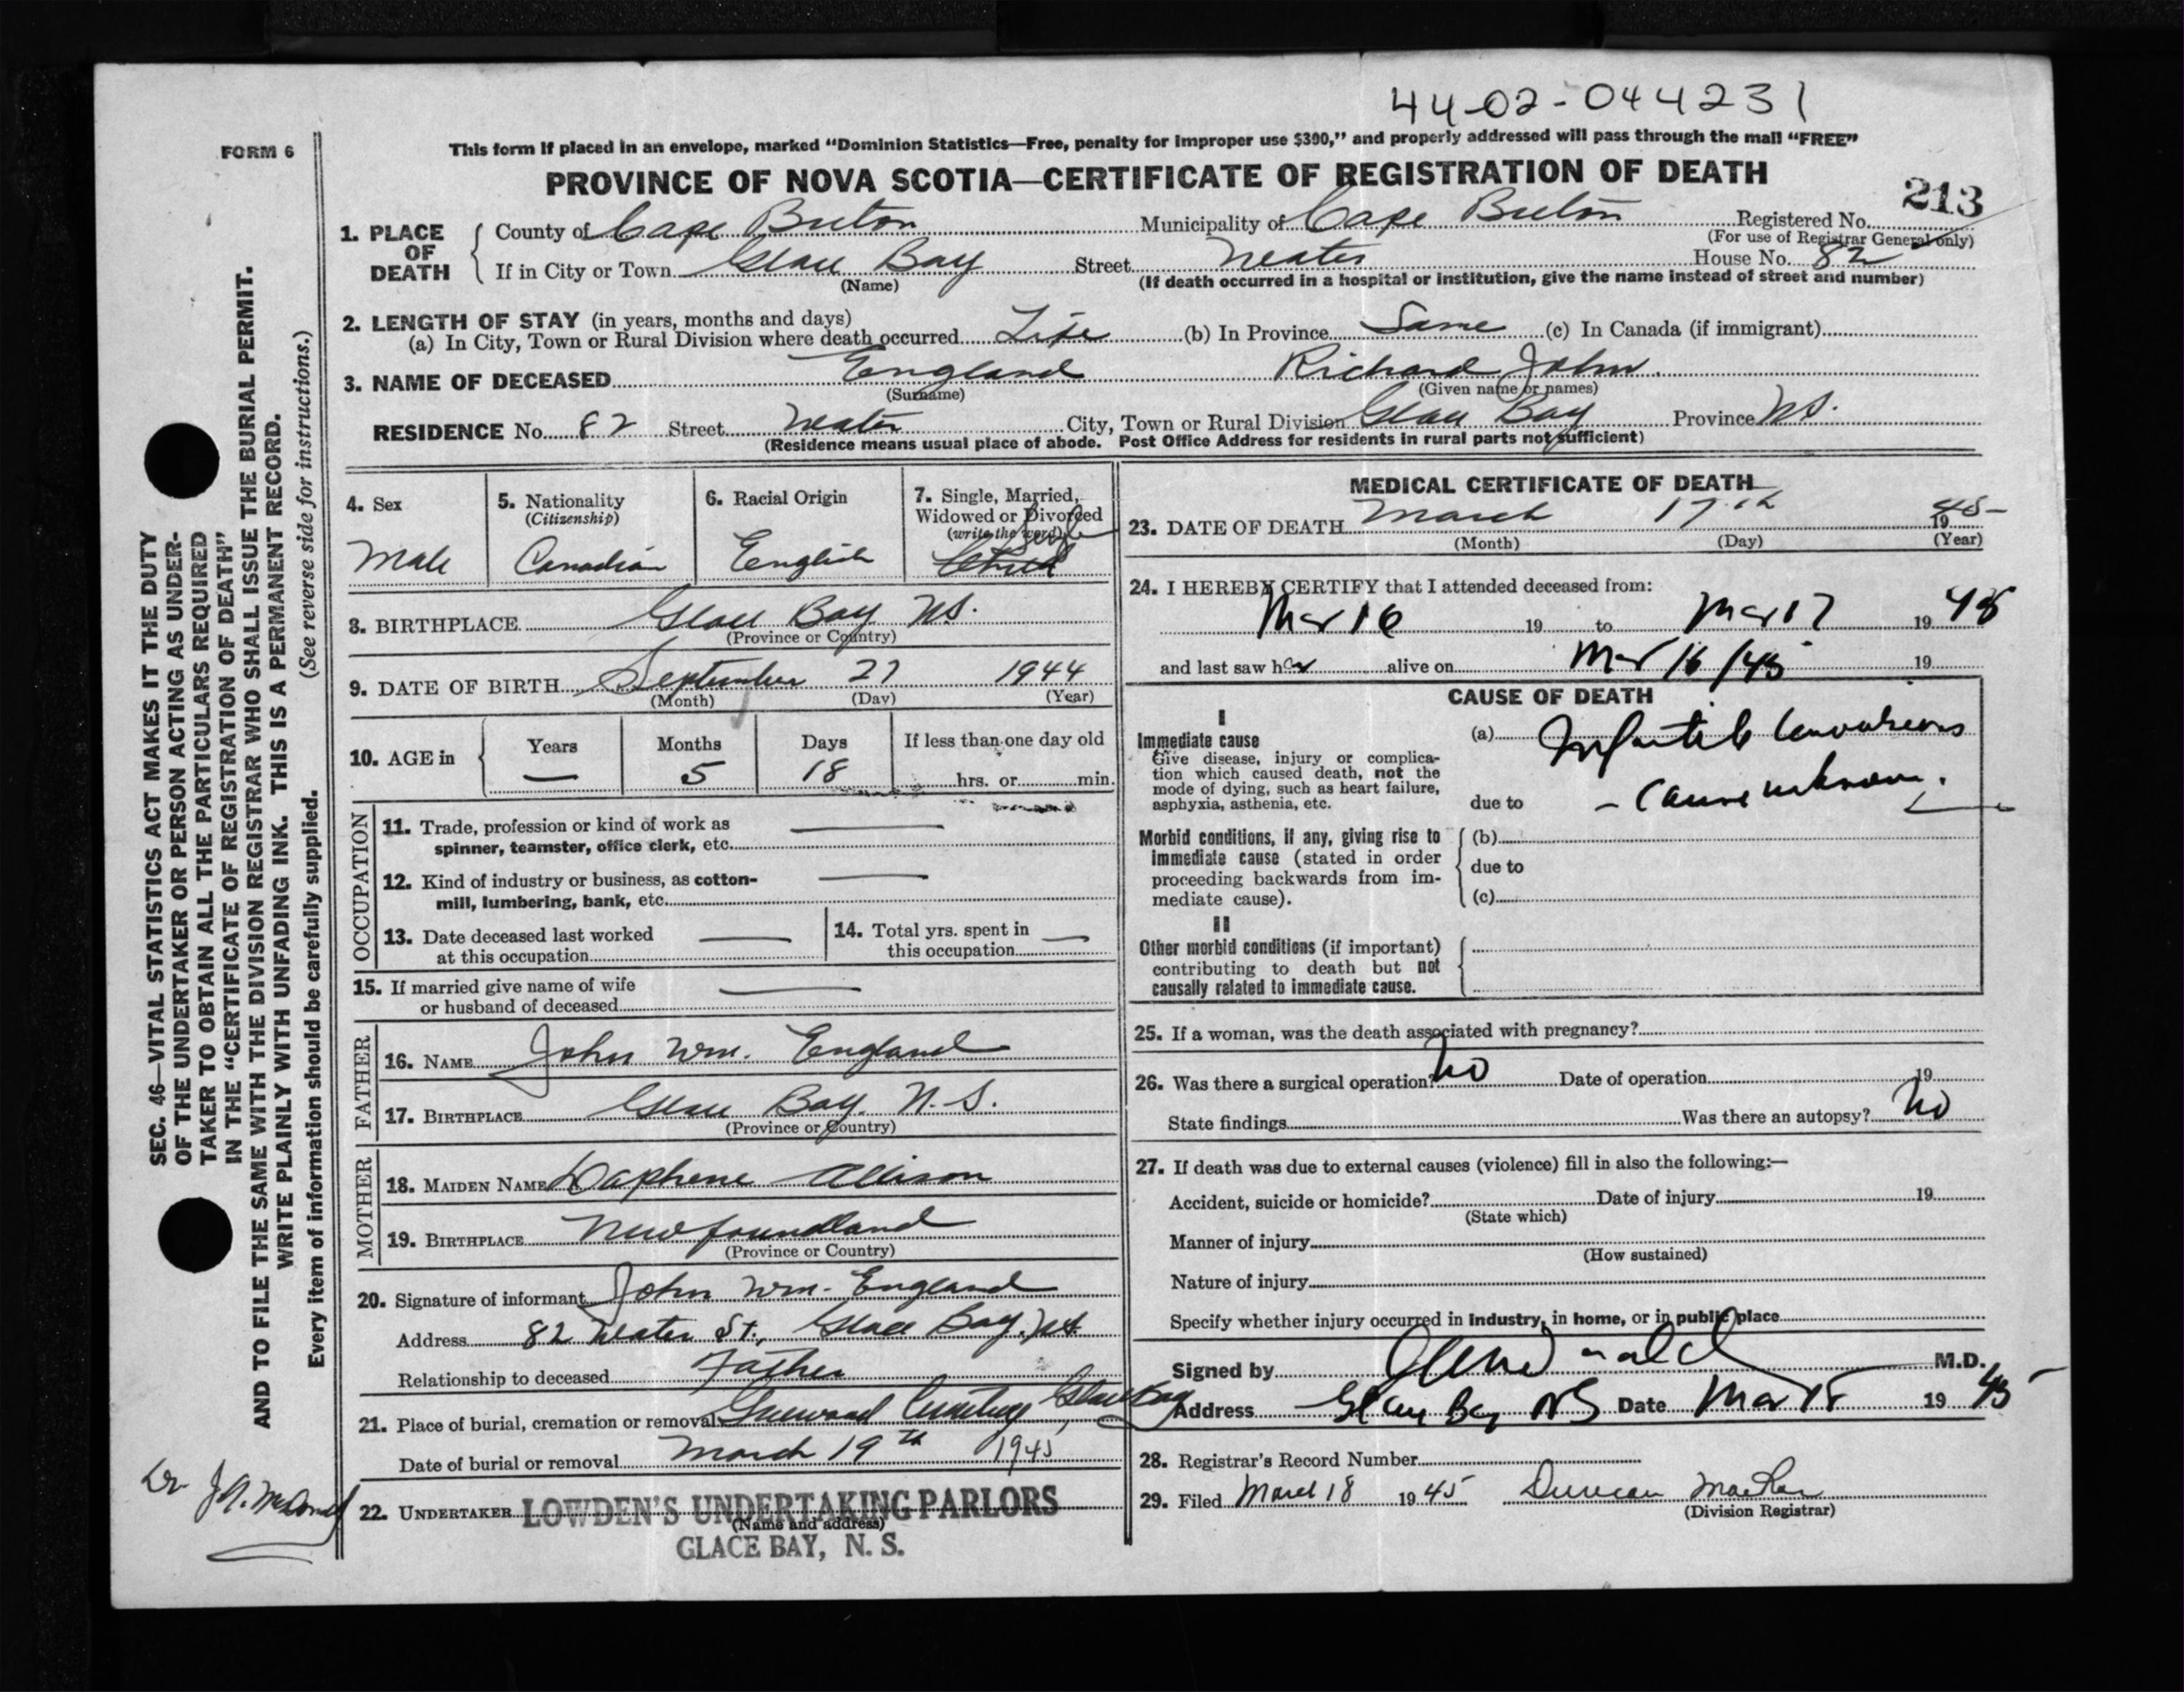 44-02-044231
FORM 6
This form if placed in an envelope, marked “Dominion Statistics—Free, penalty for improper use $300,” and properly addressed will pass through the mail “FREE”
PROVINCE OF NOVA SCOTIA—CERTIFICATE OF REGISTRATION OF DEATH
213
1. PLACE OF DEATH
County of Cape Breton Municipality of Cape Breton Registered No.
(For use of Registrar General only)
If in City or Town Glace Bay Street House No. 82
(Name) (If death occurred in a hospital or institution, give the name instead of street and number)
2. LENGTH OF STAY (in years, months and days)
(a) In City, Town or Rural Division where death occurred Life (b) In Province Same (c) In Canada (if immigrant)
3. NAME OF DECEASED England Richard John.
(Surname) (Given name or names)
RESIDENCE No. 82 Street City, Town or Rural Division Glace Bay Province N.S.
(Residence means usual place of abode. Post Office Address for residents in rural parts not sufficient)
4. Sex
Male
5. Nationality
(Citizenship)
Canadian
6. Racial Origin
English
7. Single, Married,
Widowed or Divorced
(write the word)
Single
Child
8. BIRTHPLACE Glace Bay N.S.
(Province or Country)
9. DATE OF BIRTH September 27 1944
(Month) (Day) (Year)
10. AGE in
Years Months Days If less than one day old
— 5 18 hrs. or min.
OCCUPATION
11. Trade, profession or kind of work as
spinner, teamster, office clerk, etc.
12. Kind of industry or business, as cotton-
mill, lumbering, bank, etc.
13. Date deceased last worked
at this occupation
14. Total yrs. spent in
this occupation
15. If married give name of wife
or husband of deceased
FATHER
16. NAME John Wm. England
17. BIRTHPLACE Glace Bay. N.S.
(Province or Country)
MOTHER
18. MAIDEN NAME Daphene Allison
19. BIRTHPLACE Newfoundland
(Province or Country)
20. Signature of informant John Wm. England
Address 82 St., Glace Bay, N.S.
Relationship to deceased Father
21. Place of burial, cremation or removal Greenwood Cemetery, Glace Bay
Date of burial or removal March 19th 1945
22. UNDERTAKER LOWDEN'S UNDERTAKING PARLORS
(Name and address)
GLACE BAY, N. S.
MEDICAL CERTIFICATE OF DEATH
23. DATE OF DEATH March 17th 1945
(Month) (Day) (Year)
24. I HEREBY CERTIFY that I attended deceased from:
Mar 16 19 to Mar 17 1945
and last saw h alive on Mar 16/45 19
CAUSE OF DEATH
I
Immediate cause
Give disease, injury or complica-
tion which caused death, not the
mode of dying, such as heart failure,
asphyxia, asthenia, etc.
(a) Infantile Convulsions
due to - Cause unknown.
Morbid conditions, if any, giving rise to
immediate cause (stated in order
proceeding backwards from im-
mediate cause).
(b)
due to
(c)
II
Other morbid conditions (if important)
contributing to death but not
causally related to immediate cause.
25. If a woman, was the death associated with pregnancy?
26. Was there a surgical operation? No Date of operation 19
State findings Was there an autopsy? No
27. If death was due to external causes (violence) fill in also the following:—
Accident, suicide or homicide? Date of injury 19
(State which)
Manner of injury
(How sustained)
Nature of injury
Specify whether injury occurred in industry, in home, or in public place
Signed by M.D.
Address Glace Bay NS Date Mar 18 1945
28. Registrar's Record Number
29. Filed March 18 1945 Duncan
(Division Registrar)
SEC. 46—VITAL STATISTICS ACT MAKES IT THE DUTY
OF THE UNDERTAKER OR PERSON ACTING AS UNDER-
TAKER TO OBTAIN ALL THE PARTICULARS REQUIRED
IN THE “CERTIFICATE OF REGISTRATION OF DEATH”
AND TO FILE THE SAME WITH THE DIVISION REGISTRAR WHO SHALL ISSUE THE BURIAL PERMIT.
WRITE PLAINLY WITH UNFADING INK. THIS IS A PERMANENT RECORD.
(See reverse side for instructions.)
Every item of information should be carefully supplied.
Dr